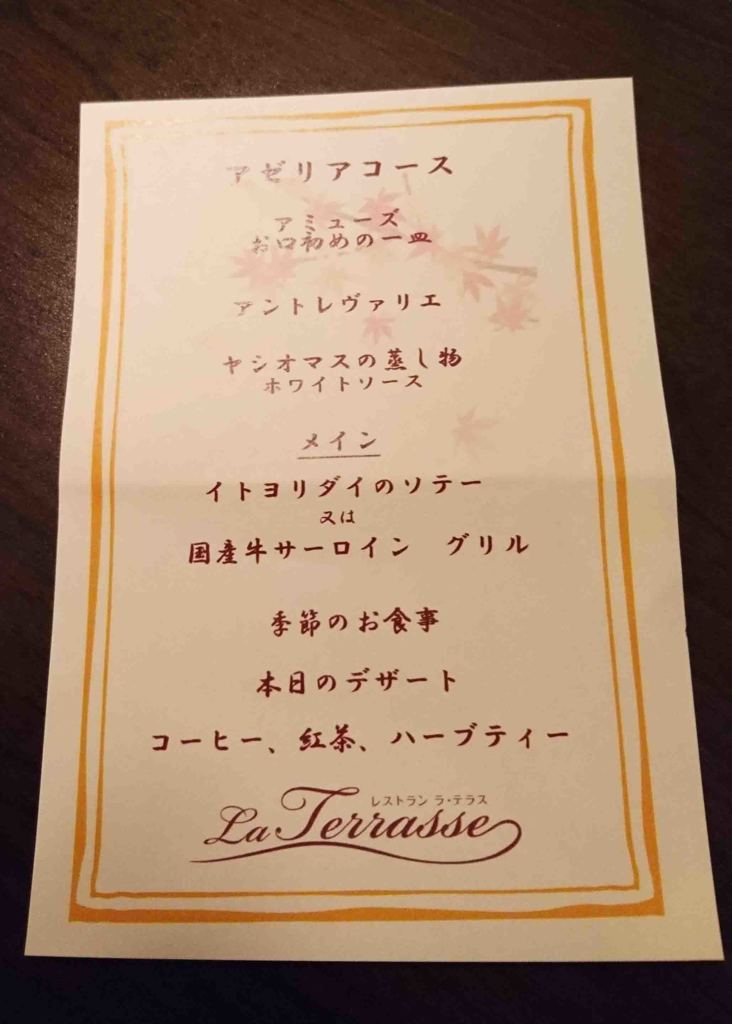 アゼリアコース
アミューズ
お口初めの一皿
アントレヴァリエ
ヤシオマスの蒸し物
ホワイトソース
メイン
イトヨリダイのソテー
又は
国産牛サーロイン　グリル
季節のお食事
本日のデザート
コーヒー、紅茶、ハーブティー
レストラン ラ・テラス
La Terrasse